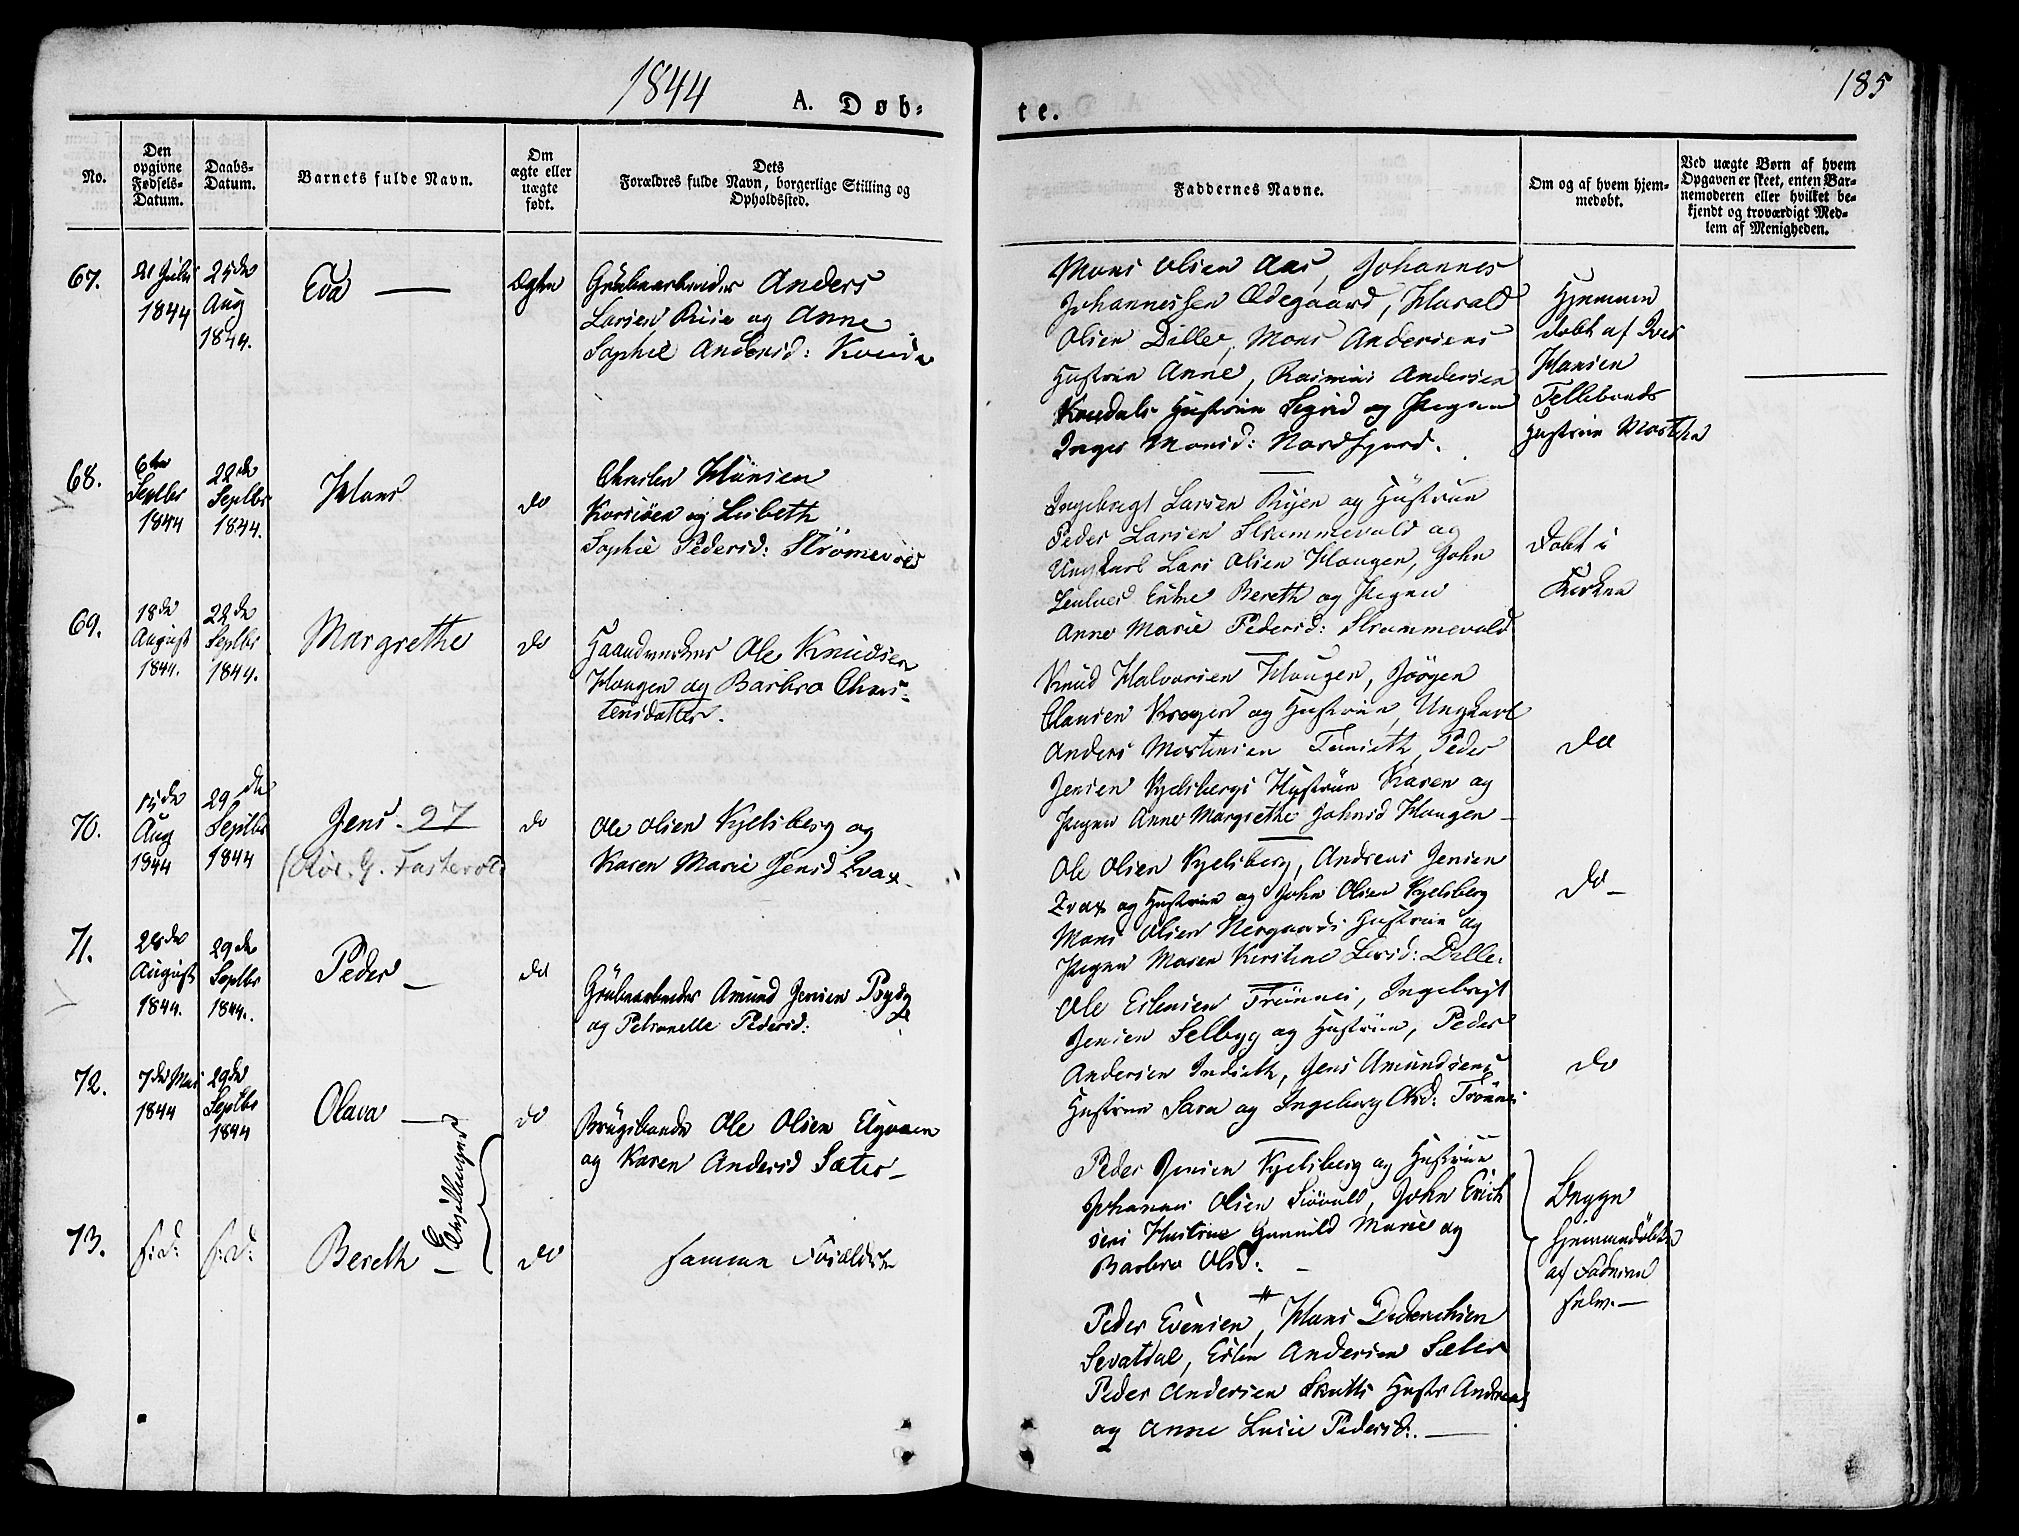 1844
A. Døb-
te.
185
No.
Den opgivne Fødsels-Datum.
Daabs-Datum.
Barnets fulde Navn.
Om ægte eller uægte født.
Dets Forældres fulde Navn, borgerlige Stilling og Opholdssted.
Faddernes Navne.
Om og af hvem hjem-medøbt.
Ved uægte Børn af hvem Opgaven er skeet, enten Bar-nemoderen eller hvilket be-kjendt og troværdigt Med-lem af Menigheden.
67.
21 Julii
1844
25de
Aug
1844.
Eva
Ægte
Grubearbeider Anders
Larsen Riise og Anne
Sophie Andersd:
Mons Olsen Aas, Johannes
Johannessen Ødegaard, Harald
Olsen Dille, Mons Andersens
Hustrue Anne, Rasmus Andersen
Hustrue Sigrid og Pigen
Inger Monsd: Nordfjord.
Hjemme
døbt af
Hansen
Hustrue Martha
68.
6te
Septbr
1844
22de
Septbr
1844.
Hans
do
Christen Hansen
Korsøen og Lisbeth
Sophie Pedersd: Strømevold
Ingebrigt Larsen Ryen og Hustrue
Peder Larsen Strømmevold og
Ungkarl Lars Olsen Haugen, John
Enke Bereth og Pigen
Anne Marie Pedersd: Strømmevold
Døbt i
Kirken
69.
18de
August
1844.
22de
Septbr
1844.
Margrethe
do
Haandverker Ole Knudsen
Haugen og Barbro Chris-
tensdatter.
Knud Halvorsen Haugen, Jørgen
Clausen Krogen og Hustrue, Ungkarl
Anders Mortensen Peder
Jensen Kjelsbergs Hustrue Karen og
Pigen Anne Margrethe Johnsd Haugen
do
70.
15de
Aug
1844
29de
Septbr
1844
Jens. 27
do
Ole Olsen Kjelsberg og
Karen Marie Jensd Kvax
Ole Olsen Kjelsberg, Andreas Jensen
Kvax og Hustrue og John Olsen Kjelsberg
Mons Olsen Nergaards Hustrue og
Pigen Maren Kirstine Larsd: Dille.
do
71.
28de
August
1844.
29de
Septbr
1844.
Peder
do
Grubearbeider Amund Jensen
og Petronelle Pedersd:
Ole Erlensen Trønnes, Ingebrigt
Jensen Selbyg og Hustrue, Peder
Andersen Jens Amundsens
Hustrue Sara og Ingeborg Olsd: Trønnes
do
72.
7de Mai
1844
29de
Septbr
1844
Olava
Tvillinger
do
Brugsbonde Ole Olsen
og Karen Andersd Sæter
Peder Jensen Kjelsberg og Hustrue
Johannes Olsen Siøvold, John Erich
sens Hustrue Gunnild Marie og
Barbro Olsd:
Begge
hjemmedøbte
af Faderen
selv.
73.
f:d:
f:d:
Bereth
do
samme Forældre
Peder Evensen, Hans Dederichsen
Sevatdal, Erlen Andersen Sæter
Peder Andersen Hustr Andrea
og Anne Lucie Pedersd.